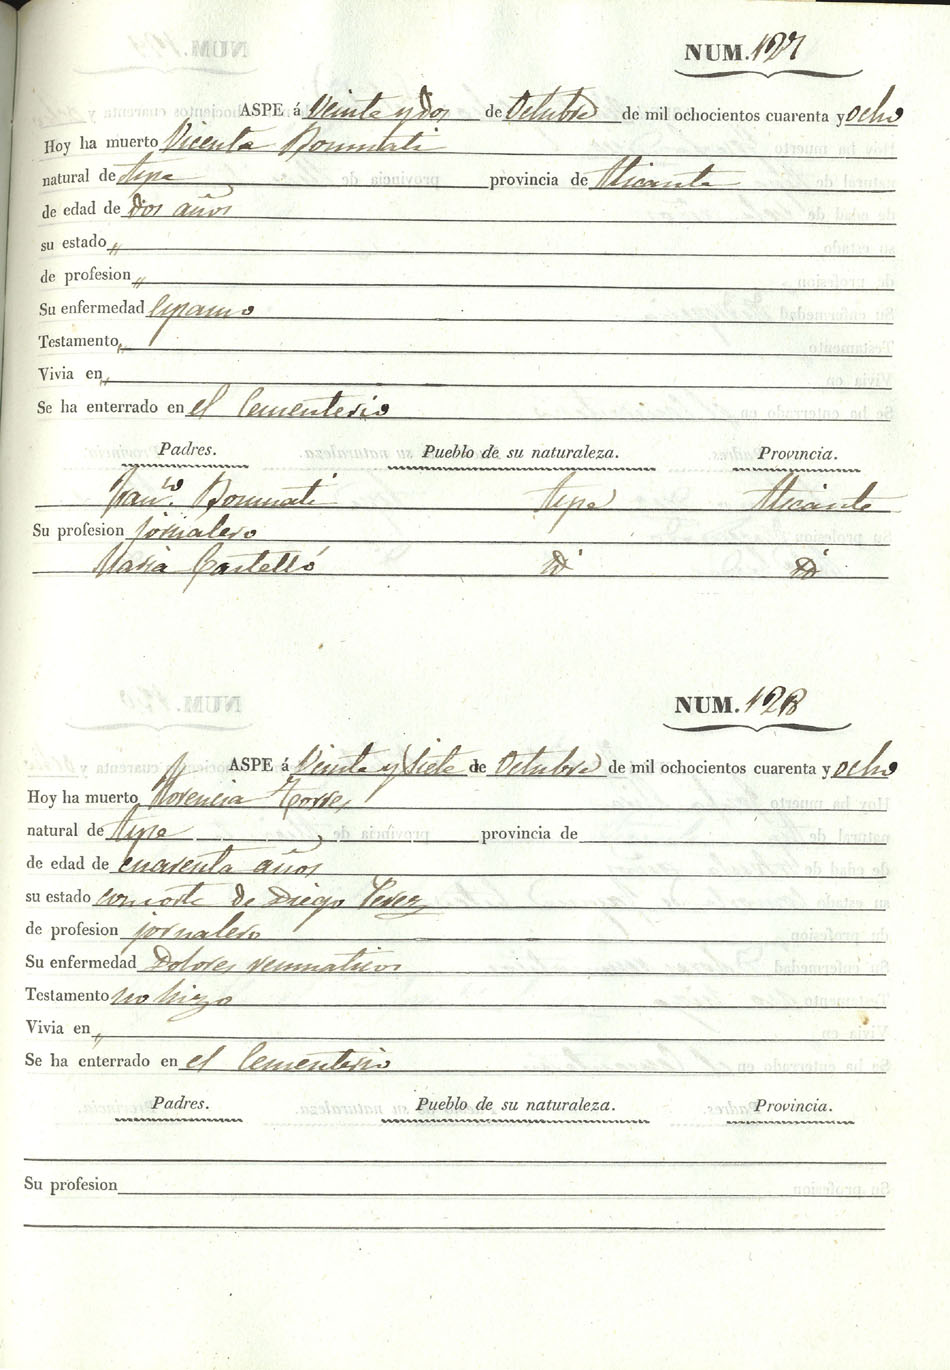 NUM. 127
ASPE á Veinte y dos de Octubre de mil ochocientos cuarenta y ocho
Hoy ha muerto Vicenta Bonmati
natural de Aspe provincia de Alicante
de edad de dos años
su estado „
de profesion „
Su enfermedad Espasmo
Testamento „
Vivia en „
Se ha enterrado en el Cementerio
Padres. Pueblo de su naturaleza. Provincia.
Bonmati Aspe Alicante
Su profesion jornalero
Maria Castelló Id Id
NUM. 128
ASPE á Veinte y siete de Octubre de mil ochocientos cuarenta y ocho
Hoy ha muerto Florencia Torres
natural de Aspe provincia de
de edad de cuarenta años
su estado consorte de Diego Perez
de profesion jornalero
Su enfermedad Dolores reumaticos
Testamento no hizo
Vivia en „
Se ha enterrado en el Cementerio
Padres. Pueblo de su naturaleza. Provincia.
Su profesion